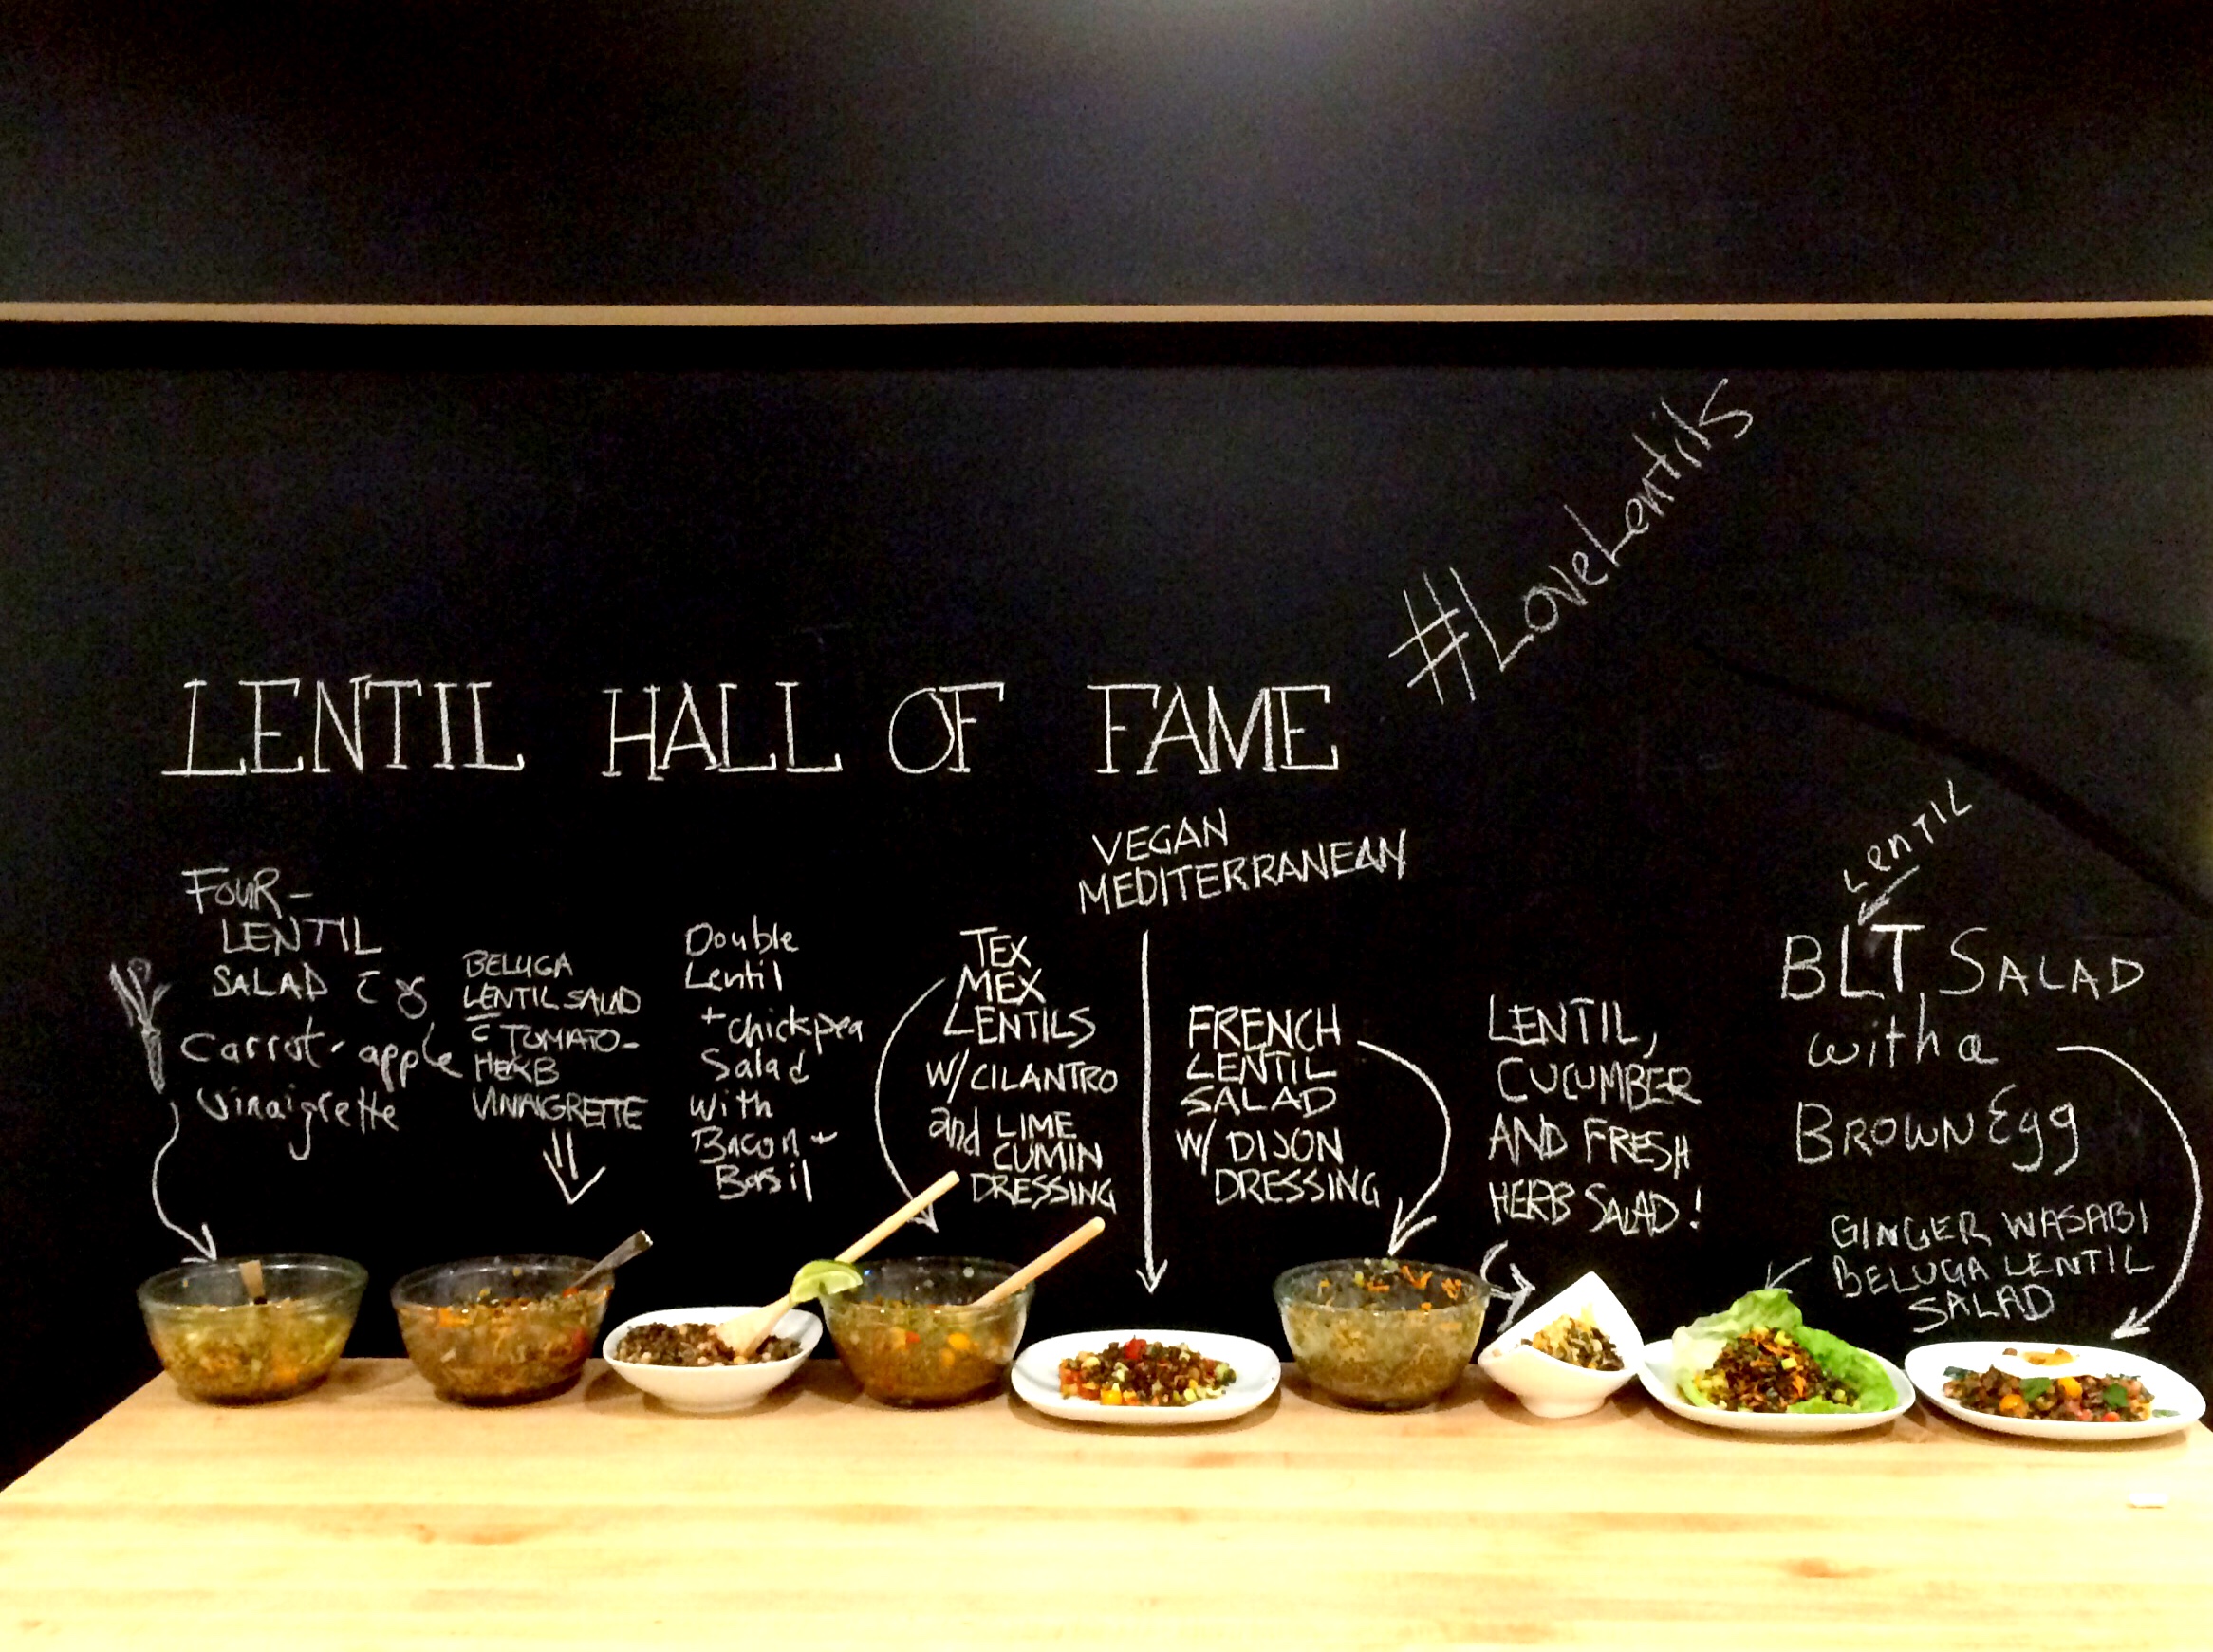 #LoveLentils
LENTIL HALL OF FAME
FOUR-
LENTIL
SALAD
Carrot-apple
Vinaigrette
BELUGA
LENTIL SALAD
c TOMATO-
HERB
VINAIGRETTE
Double
Lentil
+ chickpea
Salad
with
Bacon +
Basil
TEX
MEX
LENTILS
W/ CILANTRO
and LIME
CUMIN
DRESSING
VEGAN
MEDITERRANEAN
FRENCH
LENTIL
SALAD
W/ DIJON
DRESSING
LENTIL,
CUCUMBER
AND FRESH
HERB SALAD!
LENTIL
BLT SALAD
with a
BROWN Egg
GINGER WASABI
BELUGA LENTIL
SALAD